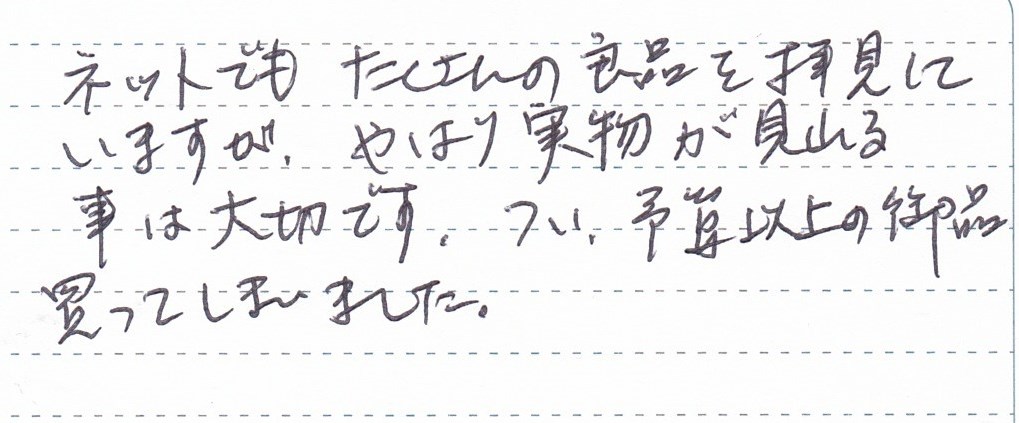 ネットでも たくさんの良品を拝見して
いますが、やはり実物が見れる
事は大切です。つい、予算以上の御品
買ってしまいました。